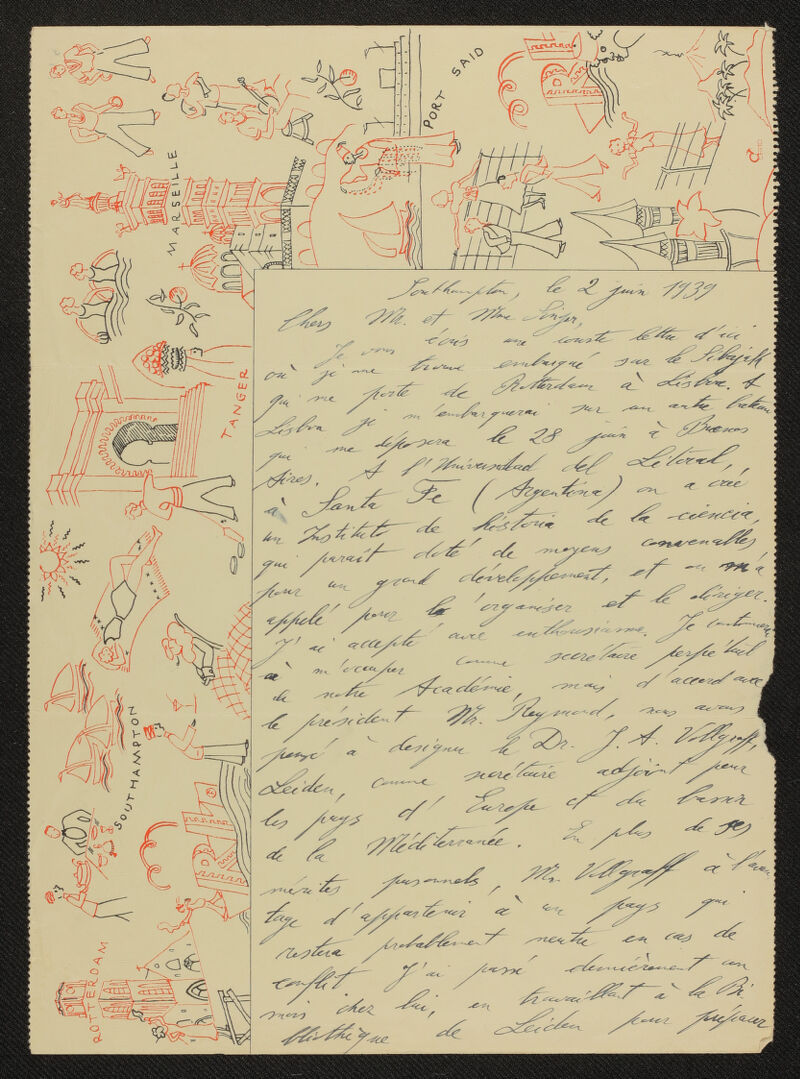 PORT SAID
MARSEILLE
TANGER
SOUTHAMPTON
ROTTERDAM
Southampton, le 2 juin 1939
Chers Mr. et Mme Singer,
Je vous écris une courte lettre d'ici
où je me trouve embarqué sur le Sibajak
qui me porte de Rotterdam à Lisbone. A
Lisbon je m'embarquerai sur un autre bateau
qui me deposera le 28 juin à Buenos
Aires. A l'Universidad del Litoral,
à Santa Fe (Argentina) on a créé
un Instituto de historia de la ciencia,
qui parait doté de moyens convenables
pour un grand développement, et on m'a
appelé pour l'organiser et le diriger.
J'ai accepté avec enthousiasme. Je continuerai
à m'occuper comme secrétaire perpétuel
de notre Académie, mais d'accord avec
le président Mr. Reymond, nous avons
pensé à designer le Dr. J. A. Vollgraff,
Leiden, comme secrétaire adjoint pour
les pays d'Europe et du bassin
de la Méditerranée. En plus de ses
mérites personnels, Mr. Vollgraff à l'avan
tage d'appartenir à un pays qui
restera probablement neutre en cas de
conflit J'ai passé dernièrement un
mois chez lui, en travaillant à la Bi
bliothèque de Leiden pour préparer